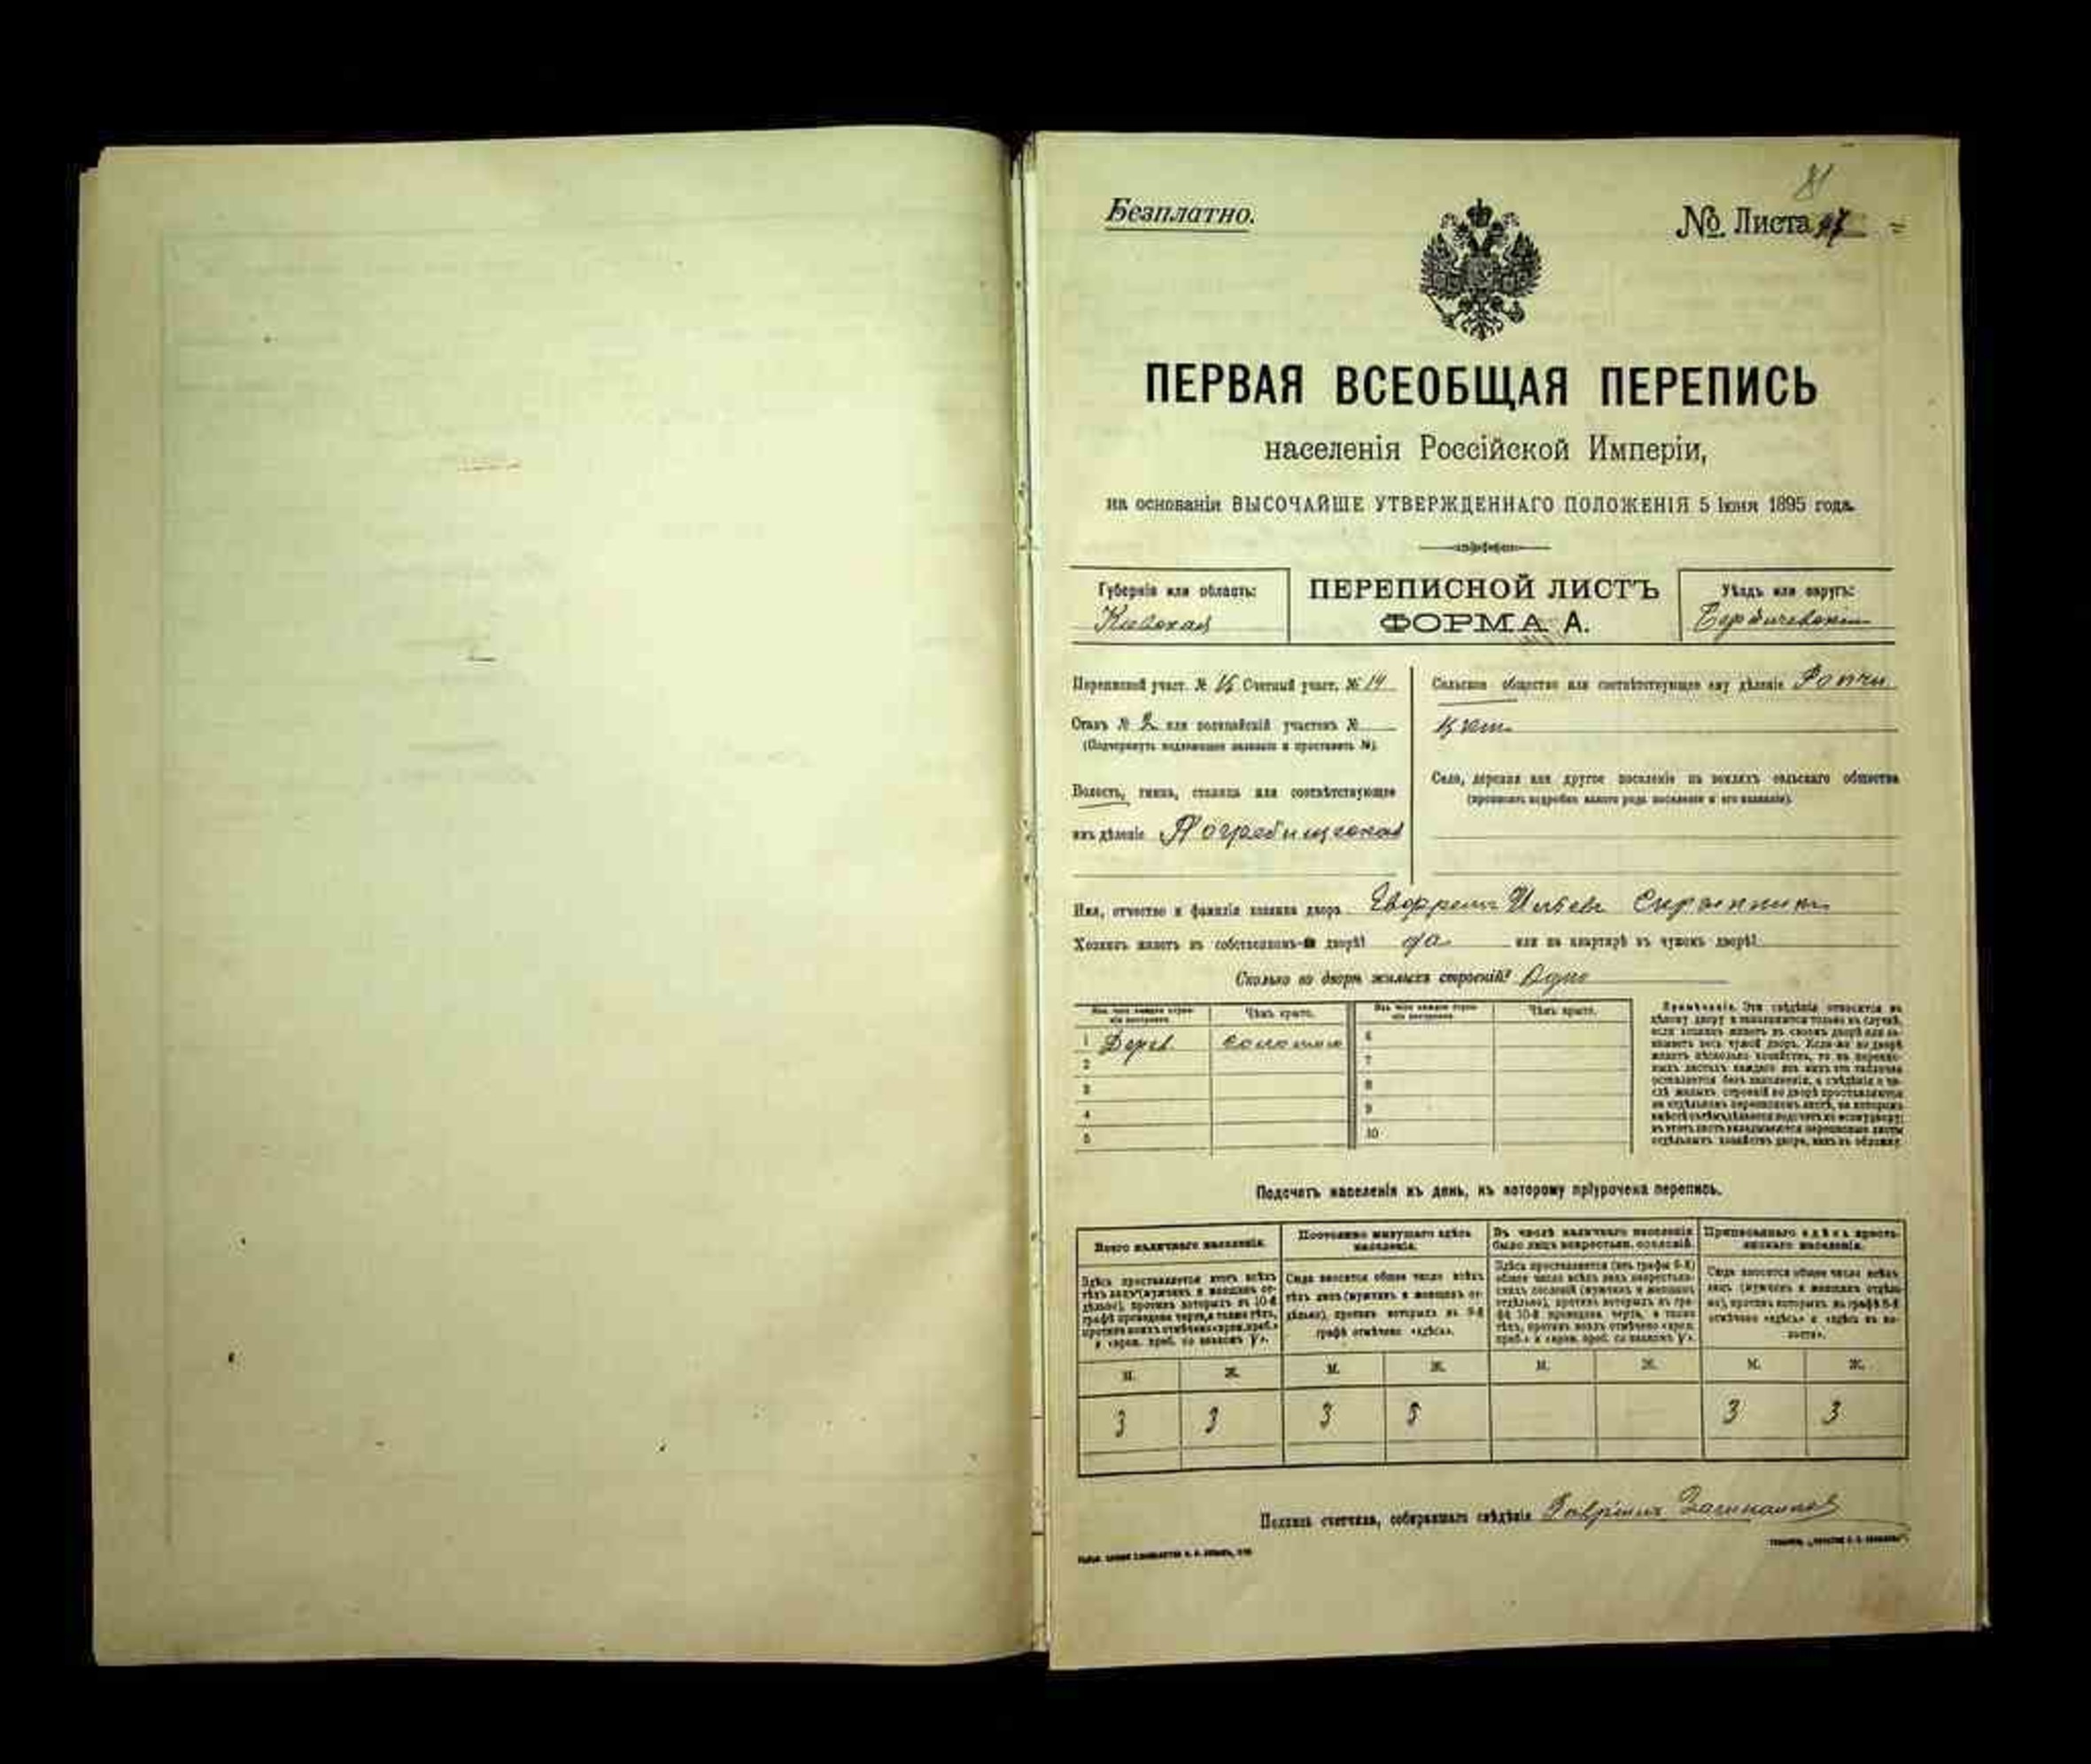 81
Безплатно.
№ Листа 47
ПЕРВАЯ ВСЕОБЩАЯ ПЕРЕПИСЬ
населенія Россійской Имперіи,
на основаніи ВЫСОЧАЙШЕ УТВЕРЖДЕННАГО ПОЛОЖЕНІЯ 5 Іюня 1895 года.
Губернія или область:
Кіевская
ПЕРЕПИСНОЙ ЛИСТЪ
ФОРМА А.
Уѣздъ или округъ:
Бердичевскій
Переписной участ. № 15 Счетный участ. № 14
Станъ № 2 или полицейскій участокъ №
(Подчеркнуть подлежащее названіе и проставить №).
Волость, гмина, станица или соотвѣтствующее
имъ дѣленіе Погребищенская
Сельское общество или соотвѣтствующее ему дѣленіе
Село, деревня или другое поселеніе на земляхъ сельскаго общества
(прописать подробно какого рода поселеніе и его названіе).
Имя, отчество и фамилія хозяина двора
Хозяинъ живетъ въ собственномъ дворѣ? да или на квартирѣ въ чужомъ дворѣ?
Сколько во дворѣ жилыхъ строеній? Одно
Изъ чего каждое строеніе построено. Чѣмъ крыто. Изъ чего каждое строеніе построено. Чѣмъ крыто.
1 Дерев. соломою 6
2 7
3 8
4 9
5 10
Примѣчаніе. Эти свѣдѣнія относятся къ
цѣлому двору и заполняются только въ случаѣ,
если хозяинъ живетъ въ своемъ дворѣ или за-
нимаетъ весь чужой дворъ. Если-же во дворѣ
живетъ нѣсколько хозяйствъ, то въ перепис-
ныхъ листахъ каждаго изъ нихъ эта табличка
оставляется безъ заполненія, а свѣдѣнія о чи-
слѣ жилыхъ строеній во дворѣ проставляются
на отдѣльномъ переписномъ листѣ, на которомъ
Подсчетъ населенія въ день, къ которому пріурочена перепись.
Всего наличнаго населенія.
Постоянно живущаго здѣсь
населенія.
Въ числѣ наличнаго населенія
было лицъ некрестьян. сословій.
Приписаннаго здѣсь кресть-
янскаго населенія.
Здѣсь проставляется итогъ всѣхъ
тѣхъ лицъ (мужчинъ и женщинъ от-
дѣльно), противъ которыхъ въ 10-й
графѣ проведена черта, а также тѣхъ,
противъ коихъ отмѣчено «врем. преб.»
Сюда вносится общее число всѣхъ
тѣхъ лицъ (мужчинъ и женщинъ от-
дѣльно), противъ которыхъ въ 9-й
графѣ отмѣчено «здѣсь».
Здѣсь проставляется (изъ графы 6-й)
общее число всѣхъ лицъ некрестьян-
скихъ сословій (мужчинъ и женщинъ
отдѣльно), противъ которыхъ въ гра-
фѣ 10-й проведена черта, а также
тѣхъ, противъ коихъ отмѣчено «врем.
Сюда вносится общее число всѣхъ
лицъ (мужчинъ и женщинъ отдѣль-
но), противъ которыхъ въ графѣ 8-й
отмѣчено «здѣсь» и «здѣсь въ во-
лости».
М. Ж. М. Ж. М. Ж. М. Ж.
3 3 3 3 3 3
Подпись счетчика, собиравшаго свѣдѣнія